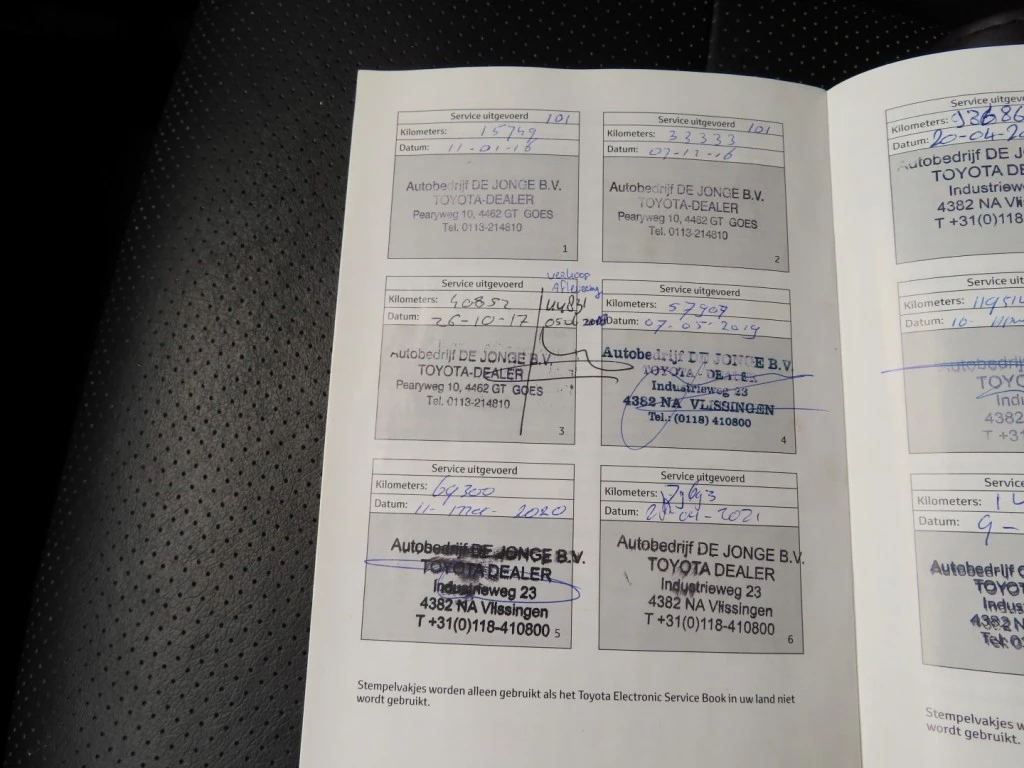 Service uitgevoerd 101
Kilometers: 15749
Datum: 11-01-16
Autobedrijf DE JONGE B.V.
TOYOTA-DEALER
Pearyweg 10, 4462 GT GOES
Tel. 0113-214810
1
Service uitgevoerd 101
Kilometers: 33333
Datum: 07-12-16
Autobedrijf DE JONGE B.V.
TOYOTA-DEALER
Pearyweg 10, 4462 GT GOES
Tel. 0113-214810
2
verkoop
Aflevering
Service uitgevoerd
Kilometers: 40852
Datum: 26-10-17
Autobedrijf DE JONGE B.V.
TOYOTA-DEALER
Pearyweg 10, 4462 GT GOES
Tel. 0113-214810
3
Service uitgevoerd
Kilometers: 57907
Datum: 07-05-2019
Autobedrijf DE JONGE B.V.
TOYOTA-DEALER
Industrieweg 23
4382 NA VLISSINGEN
Tel.: (0118) 410800
4
Service uitgevoerd
Kilometers: 69300
Datum: 11- mei- 2020
Autobedrijf DE JONGE B.V.
TOYOTA DEALER
Industrieweg 23
4382 NA Vlissingen
T +31(0)118-410800
5
Service uitgevoerd
Kilometers:
Datum: -04-2021
Autobedrijf DE JONGE B.V.
TOYOTA DEALER
Industrieweg 23
4382 NA Vlissingen
T +31(0)118-410800
6
Stempelvakjes worden alleen gebruikt als het Toyota Electronic Service Book in uw land niet
wordt gebruikt.
Service uitgevoe
Kilometers: 93686
Datum: 20-04-20
Autobedrijf DE J
TOYOTA DE
Industriewe
4382 NA Vlis
T +31(0)118
Service uit
Kilometers: 11951
Datum: 10-
Autobedri
TOYO
Indu
4382
T +3
Servic
Kilometers: 14
Datum: 9-
Autobedrijf
TOYO
Indus
4382 N
Tel:
Stempelvakjes w
wordt gebruikt.